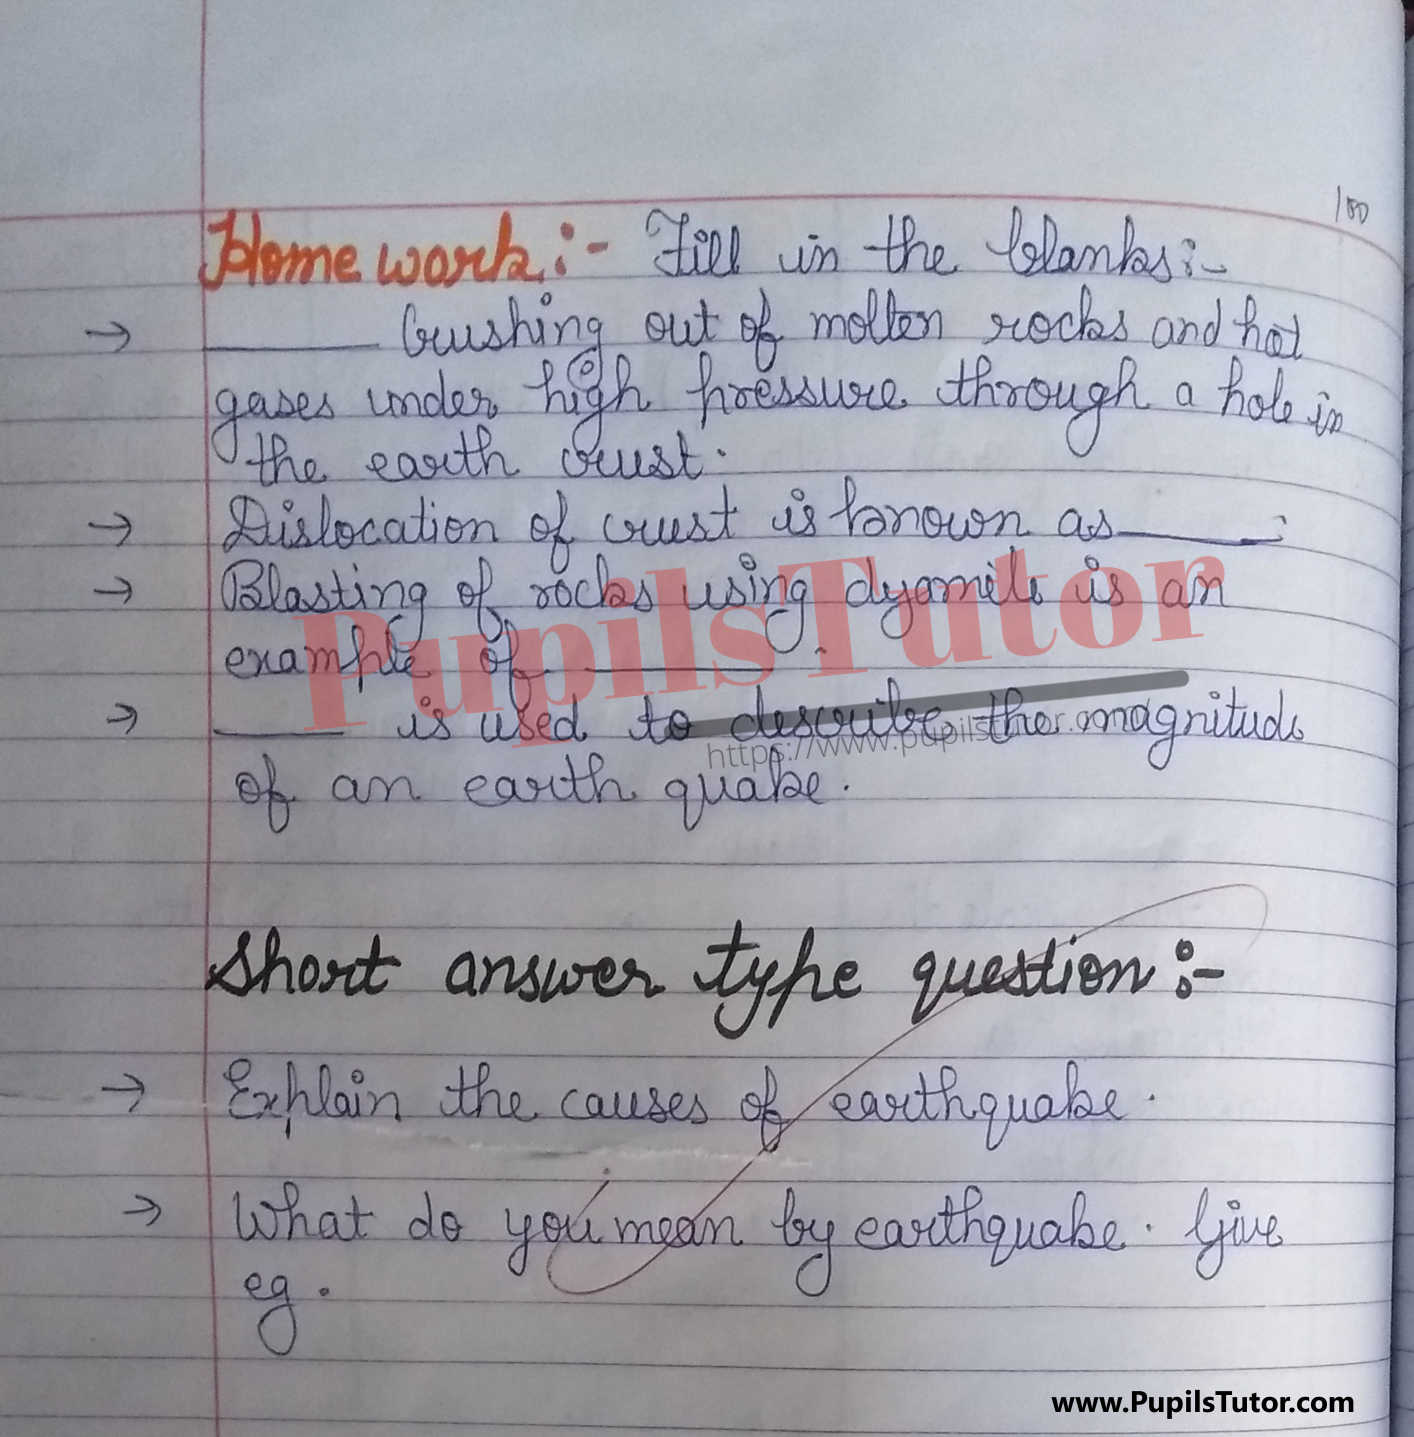 100
Home work :- Fill in the blanks :-
→ ______ Crushing out of molten rocks and hot
gases under high pressure through a hole in
the earth crust.
→ Dislocation of crust is known as ______.
→ Blasting of rocks using dyamite is an
example of ______.
→ ______ is used to describe the magnitude
of an earth quake.
PupilsTutor
https://www.pupilstutor.com
Short answer type question :-
→ Explain the causes of earthquake.
→ What do you mean by earthquake. Give
eg.
www.PupilsTutor.com